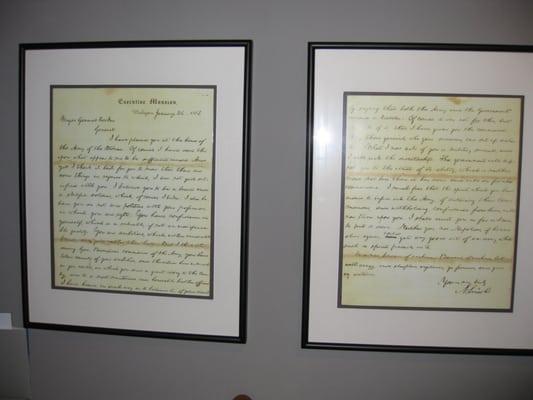 Executive Mansion,
Washington, January 26, 1863
Major General Hooker:
General.
I have placed you at the head of
the Army of the Potomac. Of course I have done this
upon what appear to me to be sufficient reasons. And
yet I think it best for you to know that there are
some things in regard to which, I am not quite sat-
isfied with you. I believe you to be a brave and
a skilful soldier, which, of course, I like. I also be-
lieve you do not mix politics with your profession,
in which you are right. You have confidence in
yourself, which is a valuable, if not an indispensa-
ble quality. You are ambitious, which, within reasonable
bounds, does good rather than harm. But I think that
during Gen. Burnside's command of the Army, you have
taken counsel of your ambition, and thwarted him as much
as you could, in which you did a great wrong to the coun-
try, and to a most meritorious and honorable brother officer.
I have heard, in such way as to believe it, of your recent-
ly saying that both the Army and the Government
needed a Dictator. Of course it was not for this, but
in spite of it, that I have given you the command.
Only those generals who gain successes, can set up dic-
tators. What I now ask of you is military success, and
I will risk the dictatorship. The government will sup-
port you to the utmost of its ability, which is neither
more nor less than it has done and will do for all com-
manders. I much fear that the spirit which you have
aided to infuse into the Army, of criticising their Com-
mander, and withholding confidence from him, will
now turn upon you. I shall assist you as far as I can,
to put it down. Neither you, nor Napoleon, if he were
alive again, could get any good out of an army, while
such a spirit prevails in it.
And now, beware of rashness. Beware of rashness, but
with energy, and sleepless vigilance, go forward, and give
us victories.
Yours very truly
A. Lincoln